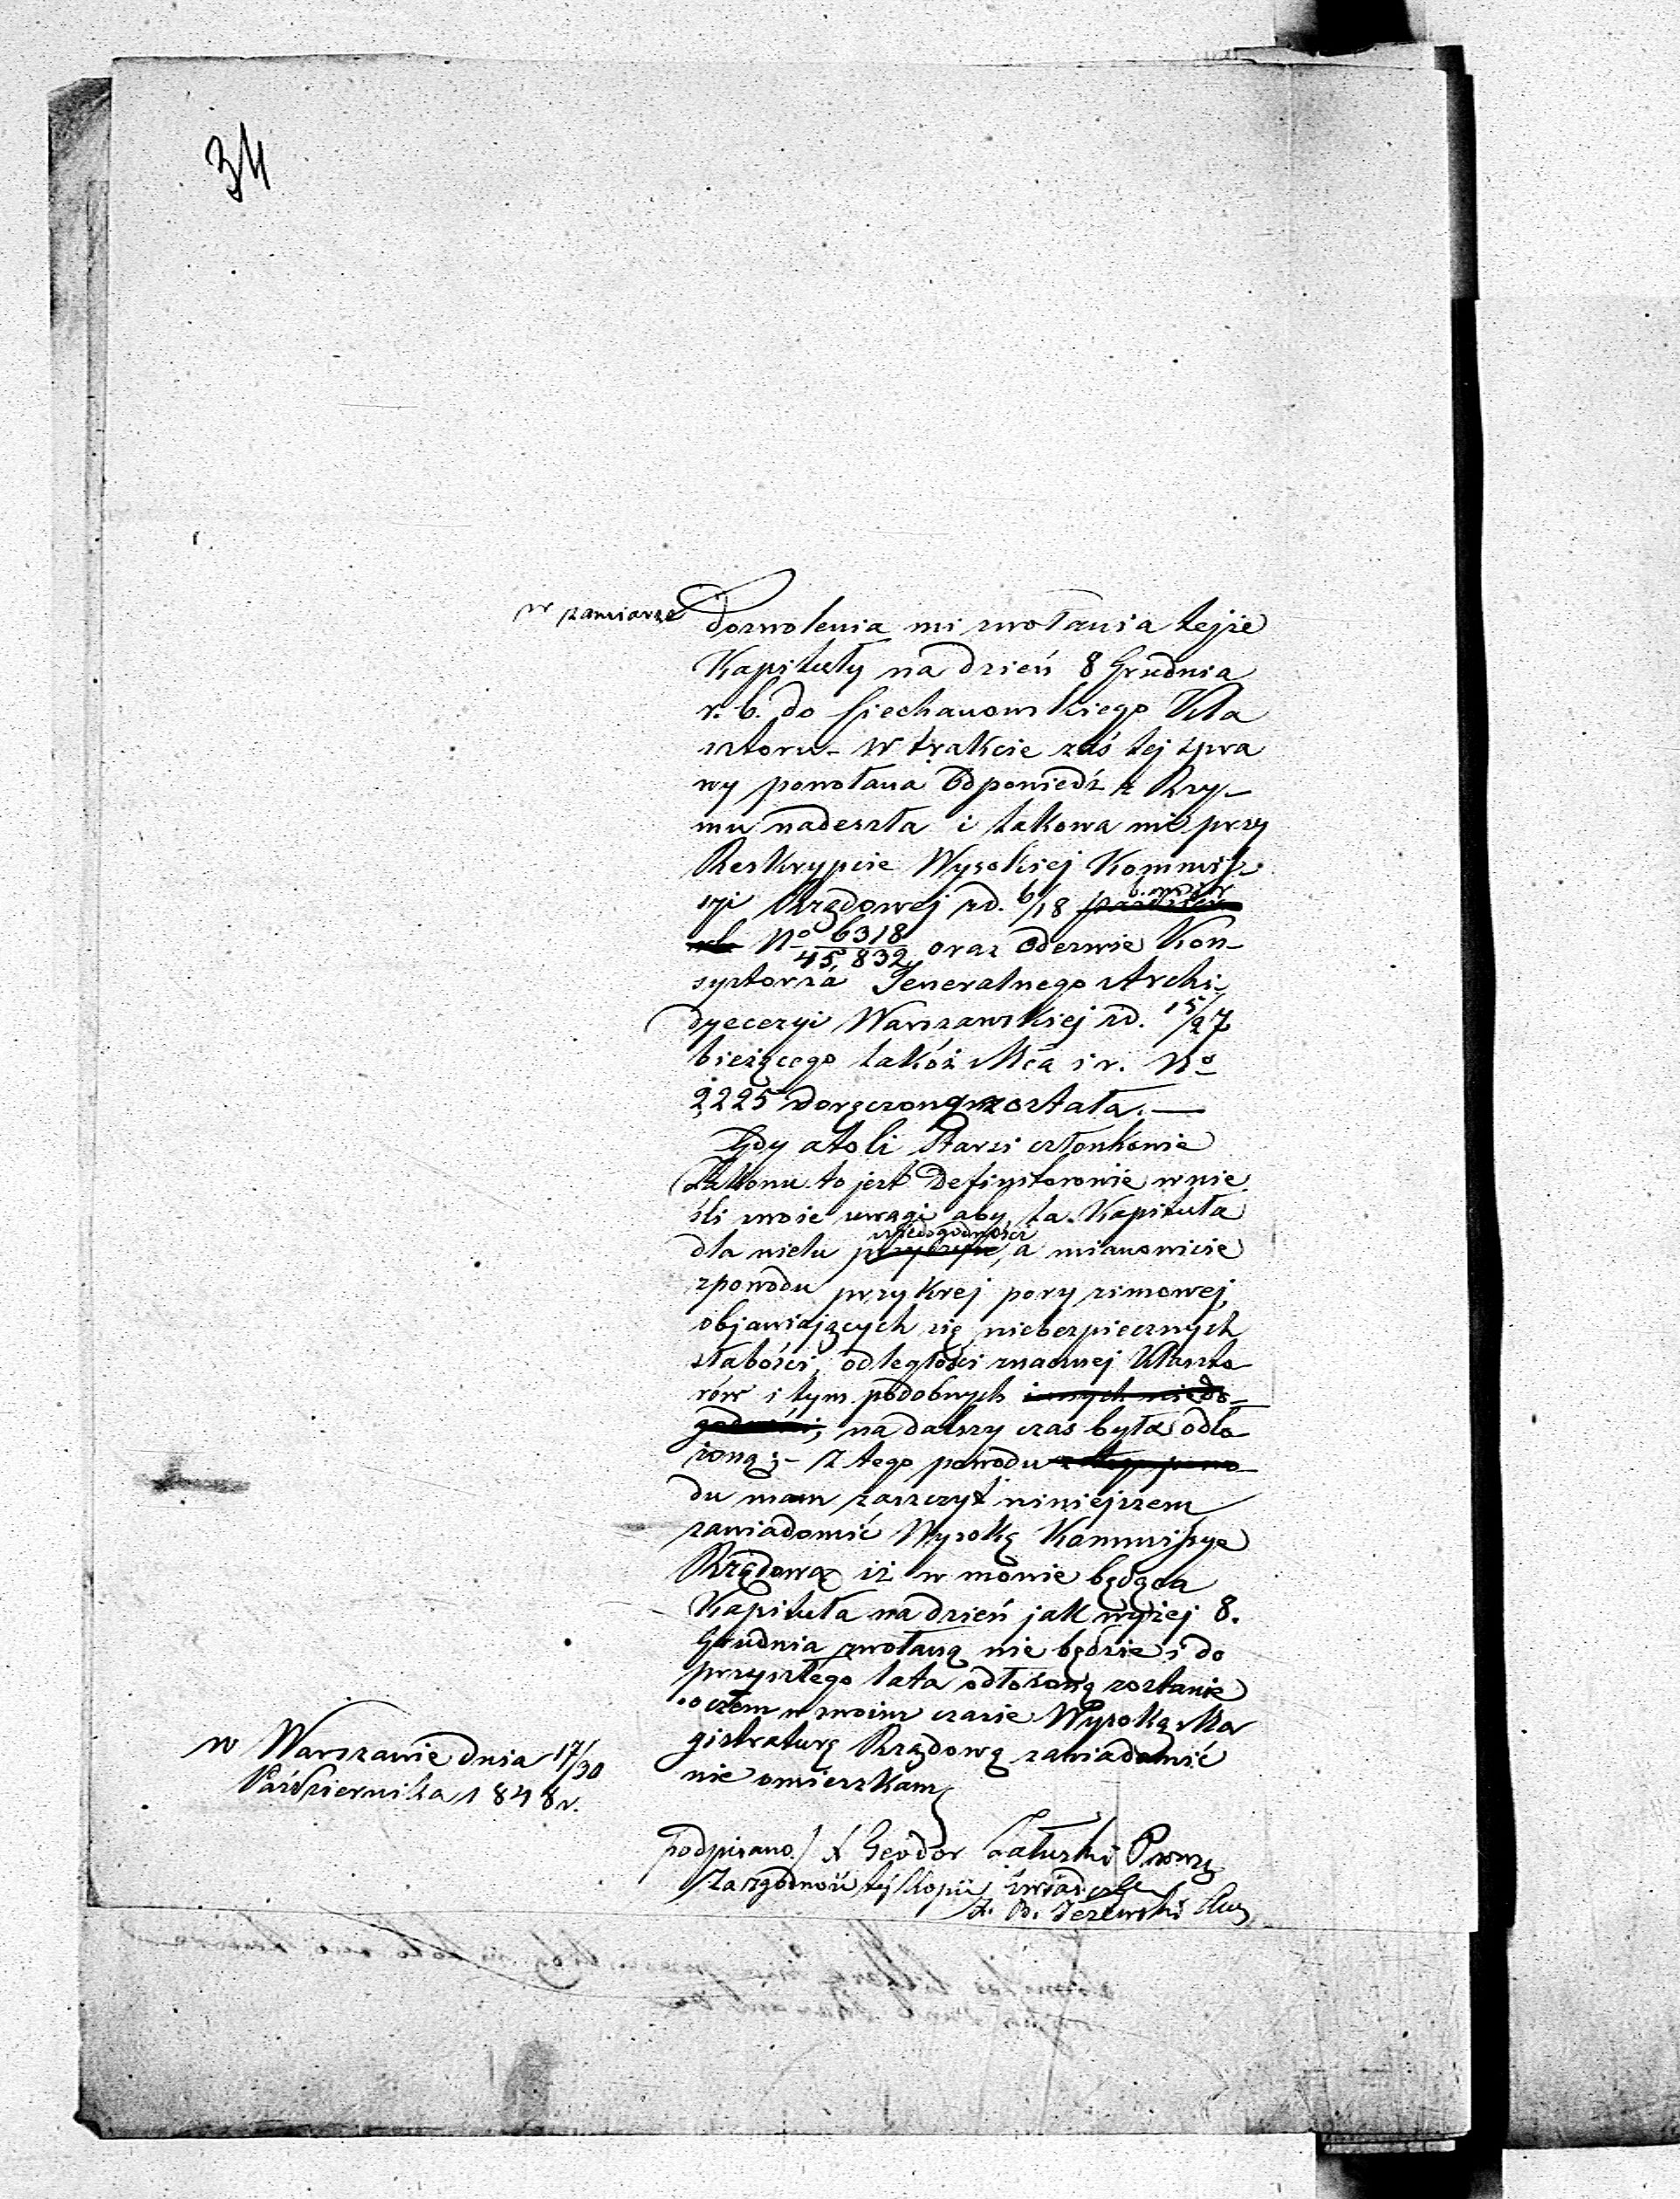 34
w zamiarze
Dozwolenia mi zwołania tejże
Kapituły na dzień 8 Grudnia
r. b. do Ciechanowskiego Kla
sztoru – W trakcie zaś tej spra
wy powołana Odpowiedź z Rzy-
mu nadeszła i takowa mi przy
Reskrypcie Wysokiej Kommis-
syi Rządowej zd. 6/18
No 6318/45,832 oraz Odezwie Kon-
systorza Jeneralnego Archi-
dyecezyi Warszawskiej zd. 15/27
bieżącego takóż Mca i r. No
2,225 doręczoną została. —
Gdy atoli Starsi członkowie
Zakonu to jest Definitorowie wnie
śli swoie uwagi aby ta Kapituła
niedogodności
dla wielu przyczyn, a mianowicie
zpowodu przykrej pory zimowej,
objawiających się niebezpiecznych
słabości, odległości znacznej Klaszto
rów i tym podobnych innych niedo-
godności, na dalszy czas była odło
żoną; – Z tego powodu z tego powo-
du mam zaszczyt niniejszem
zawiadomić Wysoką Kommissye
Rządową iż w mowie będąca
Kapituła na dzień jak wyżej 8.
Grudnia zwołaną nie będzie i do
przyszłego lata odłożoną zostanie
o czem w swoim czasie Wysoką Ma
gistraturę Rządową zawiadomić
nie omieszkam
w Warszawie dnia 17/30
Października 1848 r.
podpisano/ X Teodor Załuski
Za zgodność tej kopii świadczę
X. B. Jeżewski